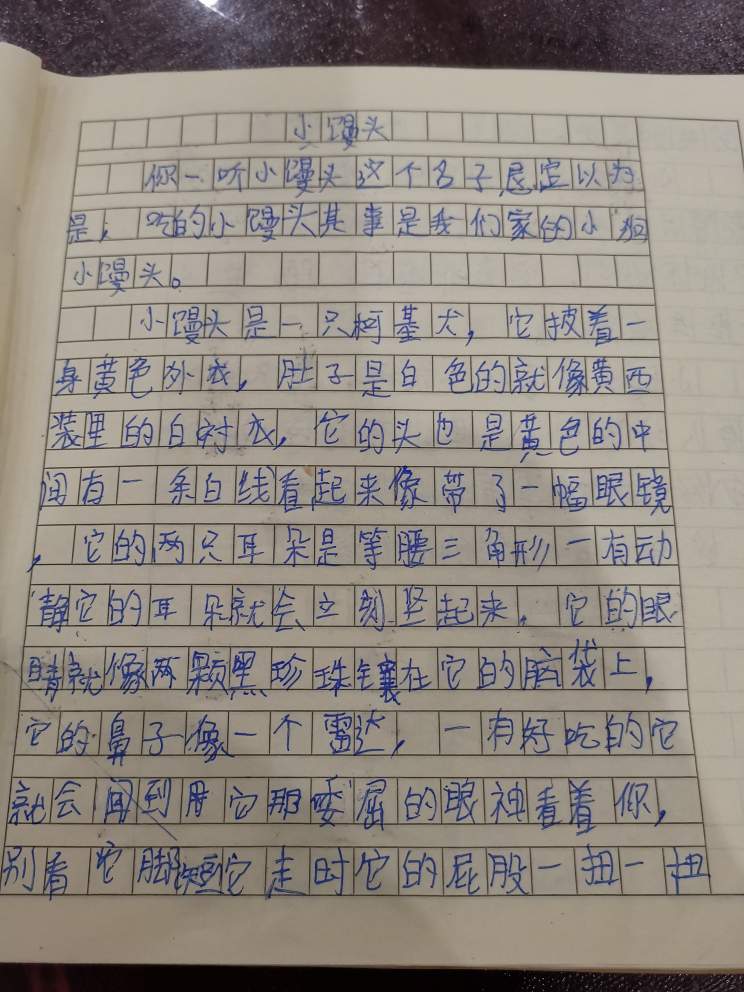 小馒头
你一听小馒头这个名子恳定以为
是，吃的小馒头其事是我们家的小狗
小馒头。
小馒头是一只柯基犬，它披着一
身黄色外衣，肚子是白色的就像黄西
装里的白衬衣，它的头也是黄色的中
间有一条白线看起来像带了一幅眼镜
，它的两只耳朵是等腰三角形一有动
静它的耳朵就会立刻竖起来，它的眼
睛就像两颗黑珍珠镶在它的脑袋上，
它的鼻子像一个雷达，一有好吃的它
就会闻到用它那委屈的眼神看着你，
别看它脚短它走时它的屁股一扭一扭